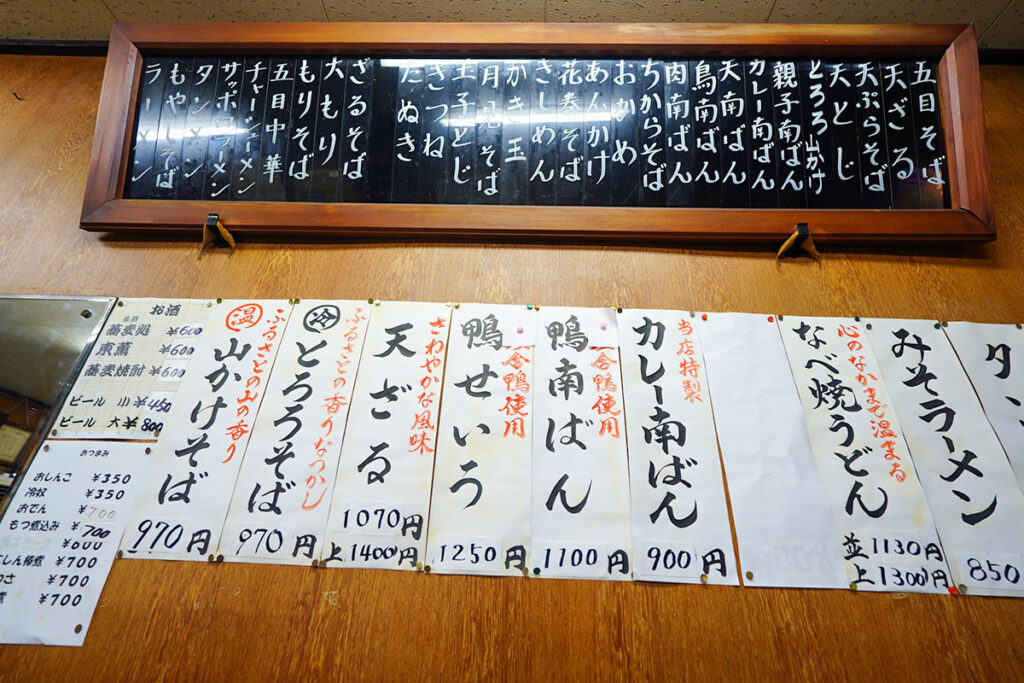 五目そば
天ざる
天ぷらそば
天とじ
とろろ山かけ
親子南ばん
カレー南ばん
天南ばん
鳥南ばん
肉南ばん
ちからそば
おかめ
あんかけ
花巻そば
きしめん
かき玉
月見そば
玉子とじ
きつね
たぬき
ざるそば
大もり
もりそば
五目中華
チャーシューメン
サッポロラーメン
タンメン
もやしそば
ラーメン
タン
850
みそラーメン
心のなかまで温まる
なべ焼うどん
並1130円
上1300円
当店特製
カレー南ばん
900円
合鴨使用
鴨南ばん
1100円
合鴨使用
鴨せいろ
1250円
さわやかな風味
天ざる
1070円
上1400円
ふるさとの香りなつかし
冷 とろろそば
970円
ふるさとの山の香り
温 山かけそば
970円
お酒
生酒
蕎麦処 ¥600
東薫 ¥600
蕎麦焼酎 ¥600
ビール 小 ¥450
ビール 大 ¥800
おつまみ
おしんこ ¥350
冷奴 ¥350
おでん ¥700
もつ煮込み ¥700
¥600
にしん棒煮 ¥700
わさ ¥700
煮 ¥700